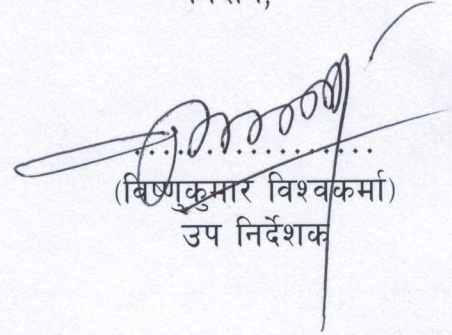 (बिष्णुकुमार विश्वकर्मा)
उप निर्देशक